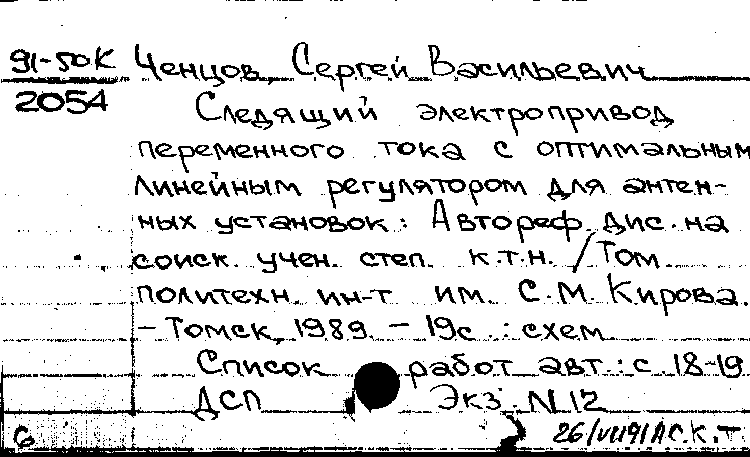 91-50К Ченцов, Сергей Васильевич
2054
Следящий электропривод
переменного тока с оптимальным
линейным регулятором для антен-
ных установок: Автореф. дис. на
соиск. учен. степ. к.т.н. / Том.
политехн. ин-т им. С.М. Кирова.
- Томск, 1989. - 19с. : схем
Список работ авт.: с 18-19
ДСП Экз. N 12
6 26/VII 91 С.К.Т.